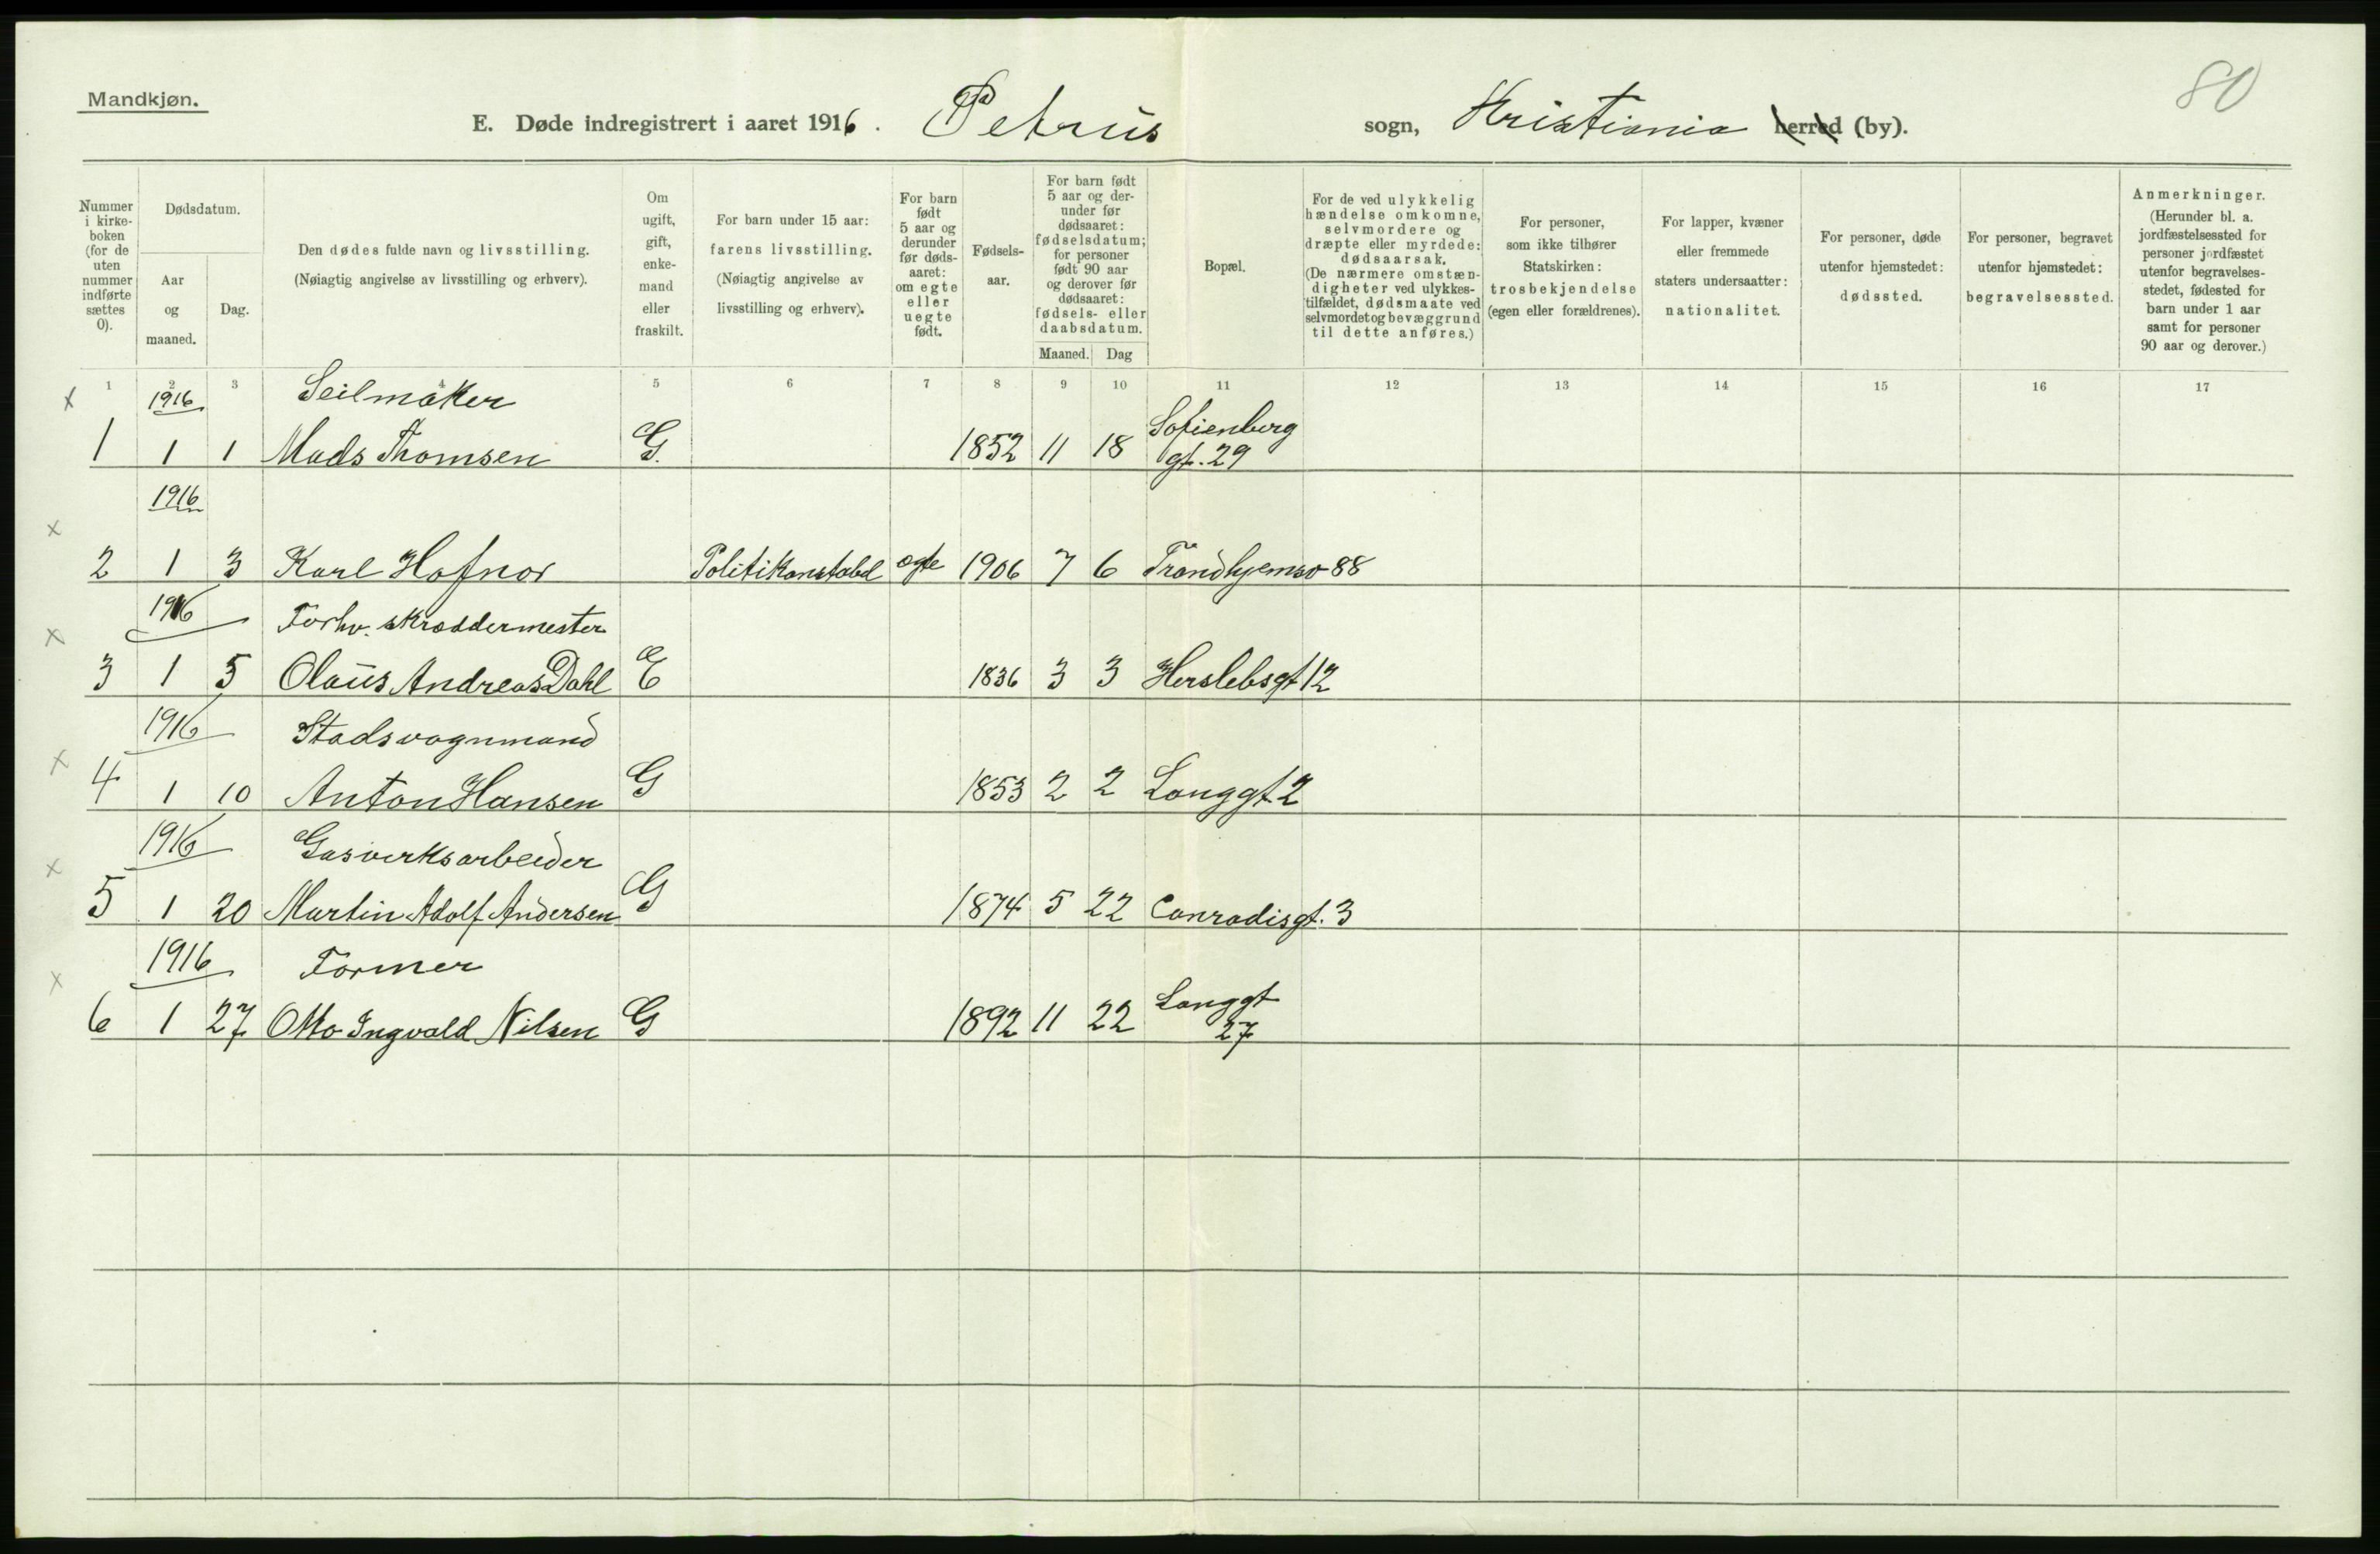 80
Mandkjøn.
E. Døde indregistrert i aaret 1916. Petrus sogn, Kristiania herred (by).
Nummer i kirke-boken (for de uten nummer indførte sættes 0).
Dødsdatum.
Aar og maaned.
Dag.
Den dødes fulde navn og livsstilling.
(Nøiagtig angivelse av livsstilling og erhverv).
Om ugift, gift, enke-mand eller fraskilt.
For barn under 15 aar: farens livsstilling. (Nøiagtig angivelse av livsstilling og erhverv).
For barn født 5 aar og derunder før døds-aaret: om egte eller uegte født.
Fødsels-aar.
For barn født 5 aar og der-under før dødsaaret: fødselsdatum; for personer født 90 aar og derover før dødsaaret: fødsels- eller daabsdatum.
Maaned. Dag
Bopæl.
For de ved ulykkelig hændelse omkomne, selvmordere og dræpte eller myrdede: dødsaarsak. (De nærmere omstæn-digheter ved ulykkes-tilfældet, dødsmaate ved selvmordet og bevæggrund til dette anføres.)
For personer, som ikke tilhører Statskirken: trosbekjendelse (egen eller forældrenes).
For lapper, kvæner eller fremmede staters undersaatter: nationalitet.
For personer, døde utenfor hjemstedet: dødssted.
For personer, begravet utenfor hjemstedet: begravelsessted.
Anmerkninger. (Herunder bl. a. jordfæstelsessted for personer jordfæstet utenfor begravelses-stedet, fødested for barn under 1 aar samt for personer 90 aar og derover.)
1 2 3 4 5 6 7 8 9 10 11 12 13 14 15 16 17
x 1916 Seilmaker
1 1 1 Mads Thomsen G. 1852 11 18 Sofienberg gt. 29
1916
x
2 1 3 Karl Hofnor Politikonstabel egte 1906 7 6 Trondhjemsv 88
1916 Forhv. skræddermester
x
3 1 5 Olaus Andreas Dahl E 1836 3 3 Herslebsgt 12
1916 Stadsvognmand
x
4 1 10 Anton Hansen G 1853 2 2 Langgt. 2
1916 Gasverksarbeider
x
5 1 20 Martin Adolf Andersen G 1874 5 22 Conradisgt. 3
1916 Former
x
6 1 27 Otto Ingvald Nilsen G 1892 11 22 Langgt 27